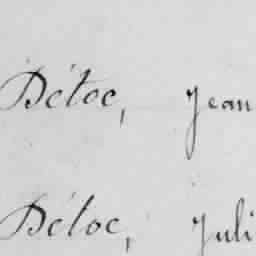 Détoc, Jean
Détoc, Juli